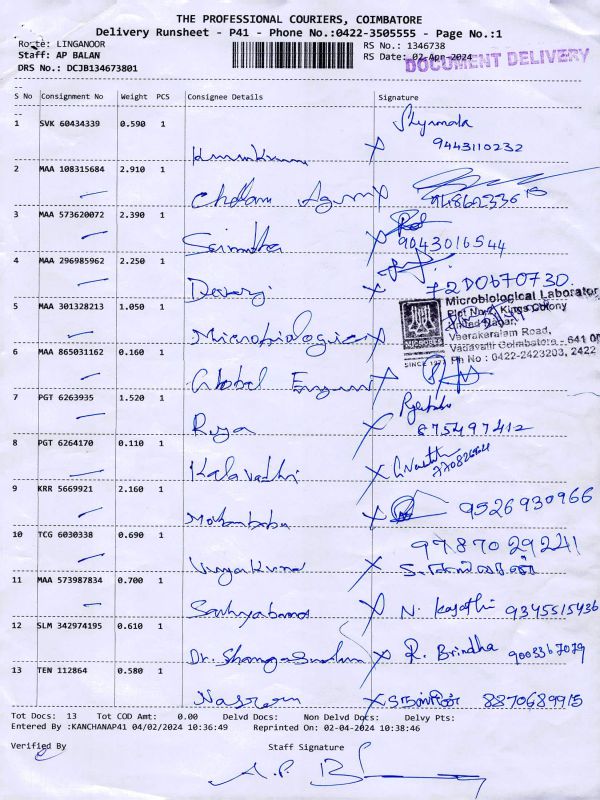 THE PROFESSIONAL COURIERS, COIMBATORE
Delivery Runsheet - P41 - Phone No.:0422-3505555 - Page No.:1
Route: LINGANOOR
RS No.: 1346738
Staff: AP BALAN
RS Date: 02-Apr-2024
DOCUMENT DELIVERY
DRS No.: DCJB134673801
S No Consignment No Weight PCS Consignee Details Signature
1 SVK 60434339 0.590 1
Shyamala
9443110232
2 MAA 108315684 2.910 1
3 MAA 573620072 2.390 1
9043016544
4 MAA 296985962 2.250 1
Devaraj
5 MAA 301328213 1.050 1
Microbiological
Microbiological Laborator
Plot No. Kings Colony
United Nagar,
Veerakeralam Road,
Vadavalli Coimbatore - 641 0
Ph No : 0422-2423203, 2422
MICROBES
SINCE
6 MAA 865031162 0.160 1
Global
7 PGT 6263935 1.520 1
Riya
875497412
8 PGT 6264170 0.110 1
Kalavathi
9 KRR 5669921 2.160 1
Mohanbabu
9526930966
10 TCG 6030338 0.690 1
9787029241
Vijayakumar
11 MAA 573987834 0.700 1
Sathyabama
N. 9345515436
12 SLM 342974195 0.610 1
Dr. R. Brindha 9003367079
13 TEN 112864 0.580 1
Nasreen 8870689915
Tot Docs: 13 Tot COD Amt: 0.00 Delvd Docs: Non Delvd Docs: Delvy Pts:
Entered By :KANCHANAP41 04/02/2024 10:36:49 Reprinted On: 02-04-2024 10:38:46
Verified By Staff Signature
A.P.